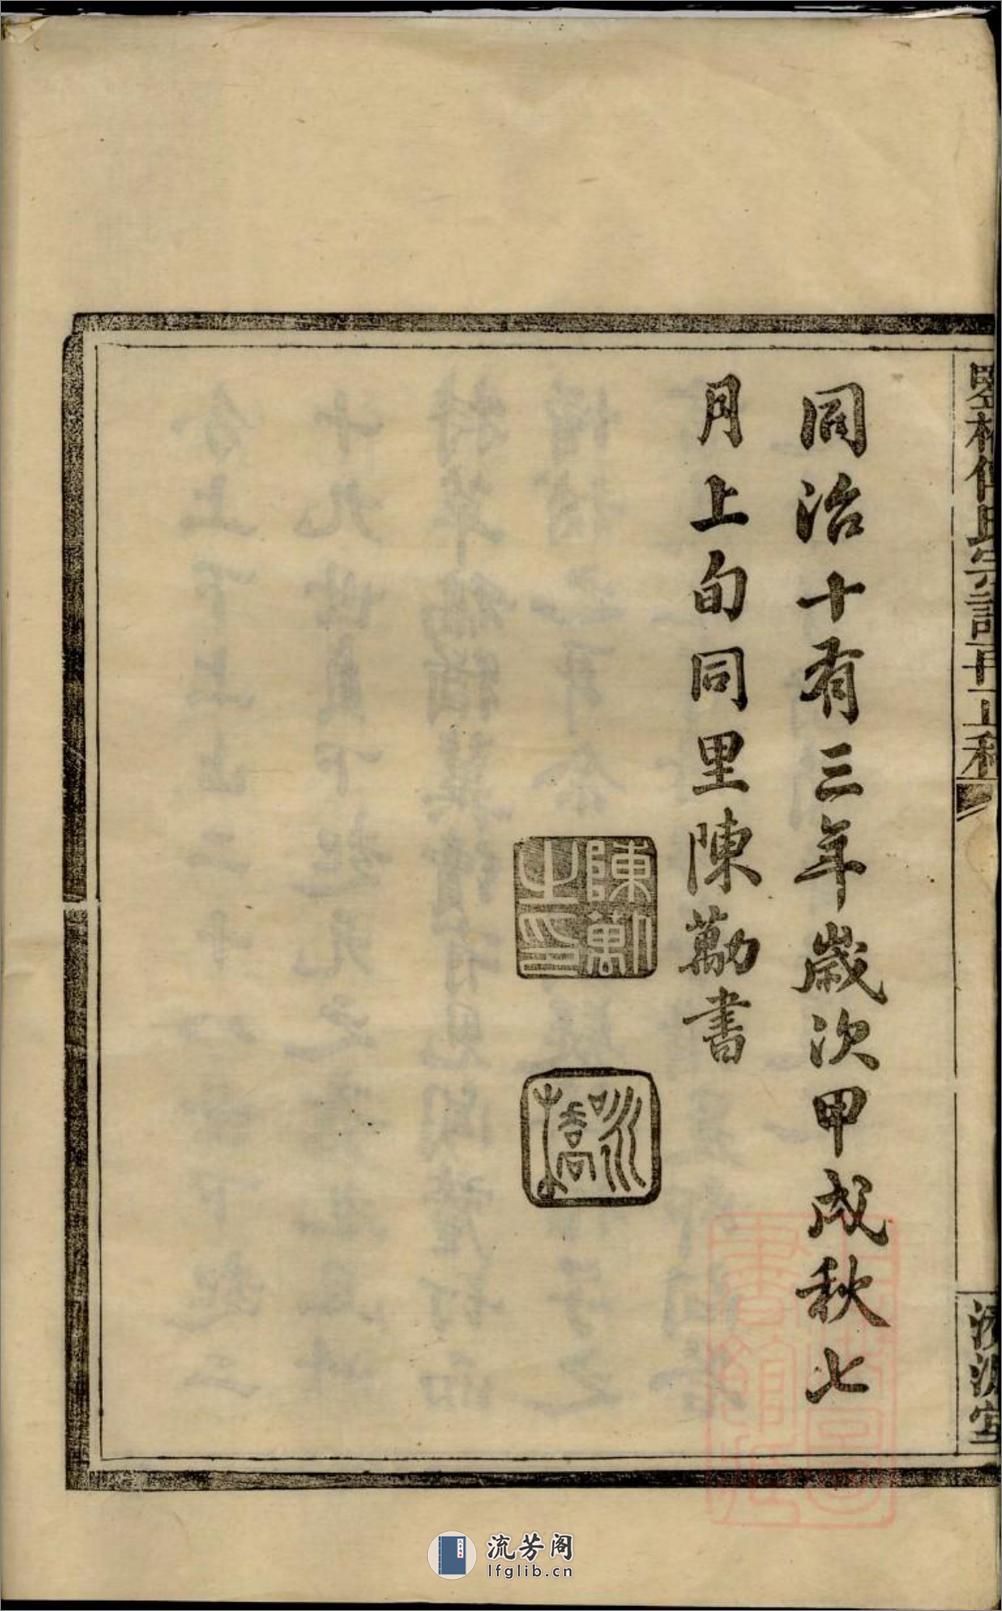 同治十有三年歲次甲戌秋七
月上旬同里陳勱書
陳勱
之印
氏宗譜
流芳阁
lfglib.cn